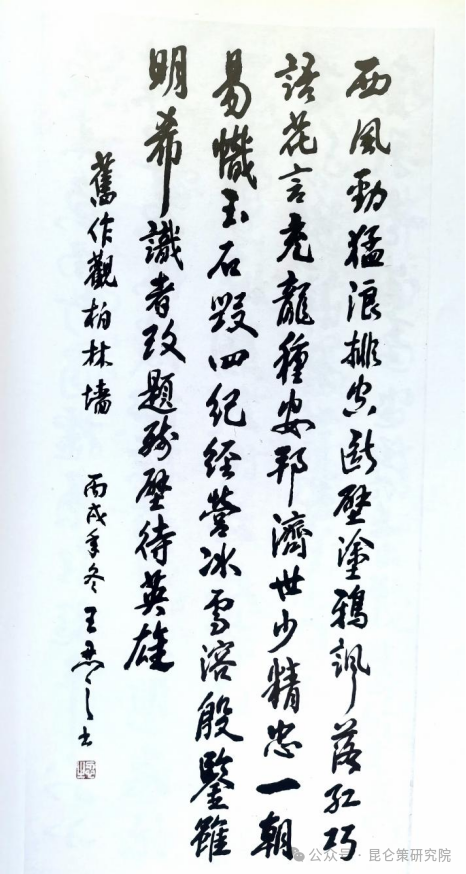 西風勁猛浪排空斷壁塗鴉諷落紅巧
語花言充龍種安邦濟世少精忠一朝
易幟玉石毀四紀經營冰雪溶殷鑒雖
明希識者玫題殘壁待英雄
舊作觀柏林墻
丙戌年冬王忍之书
公众号·昆仑策研究院